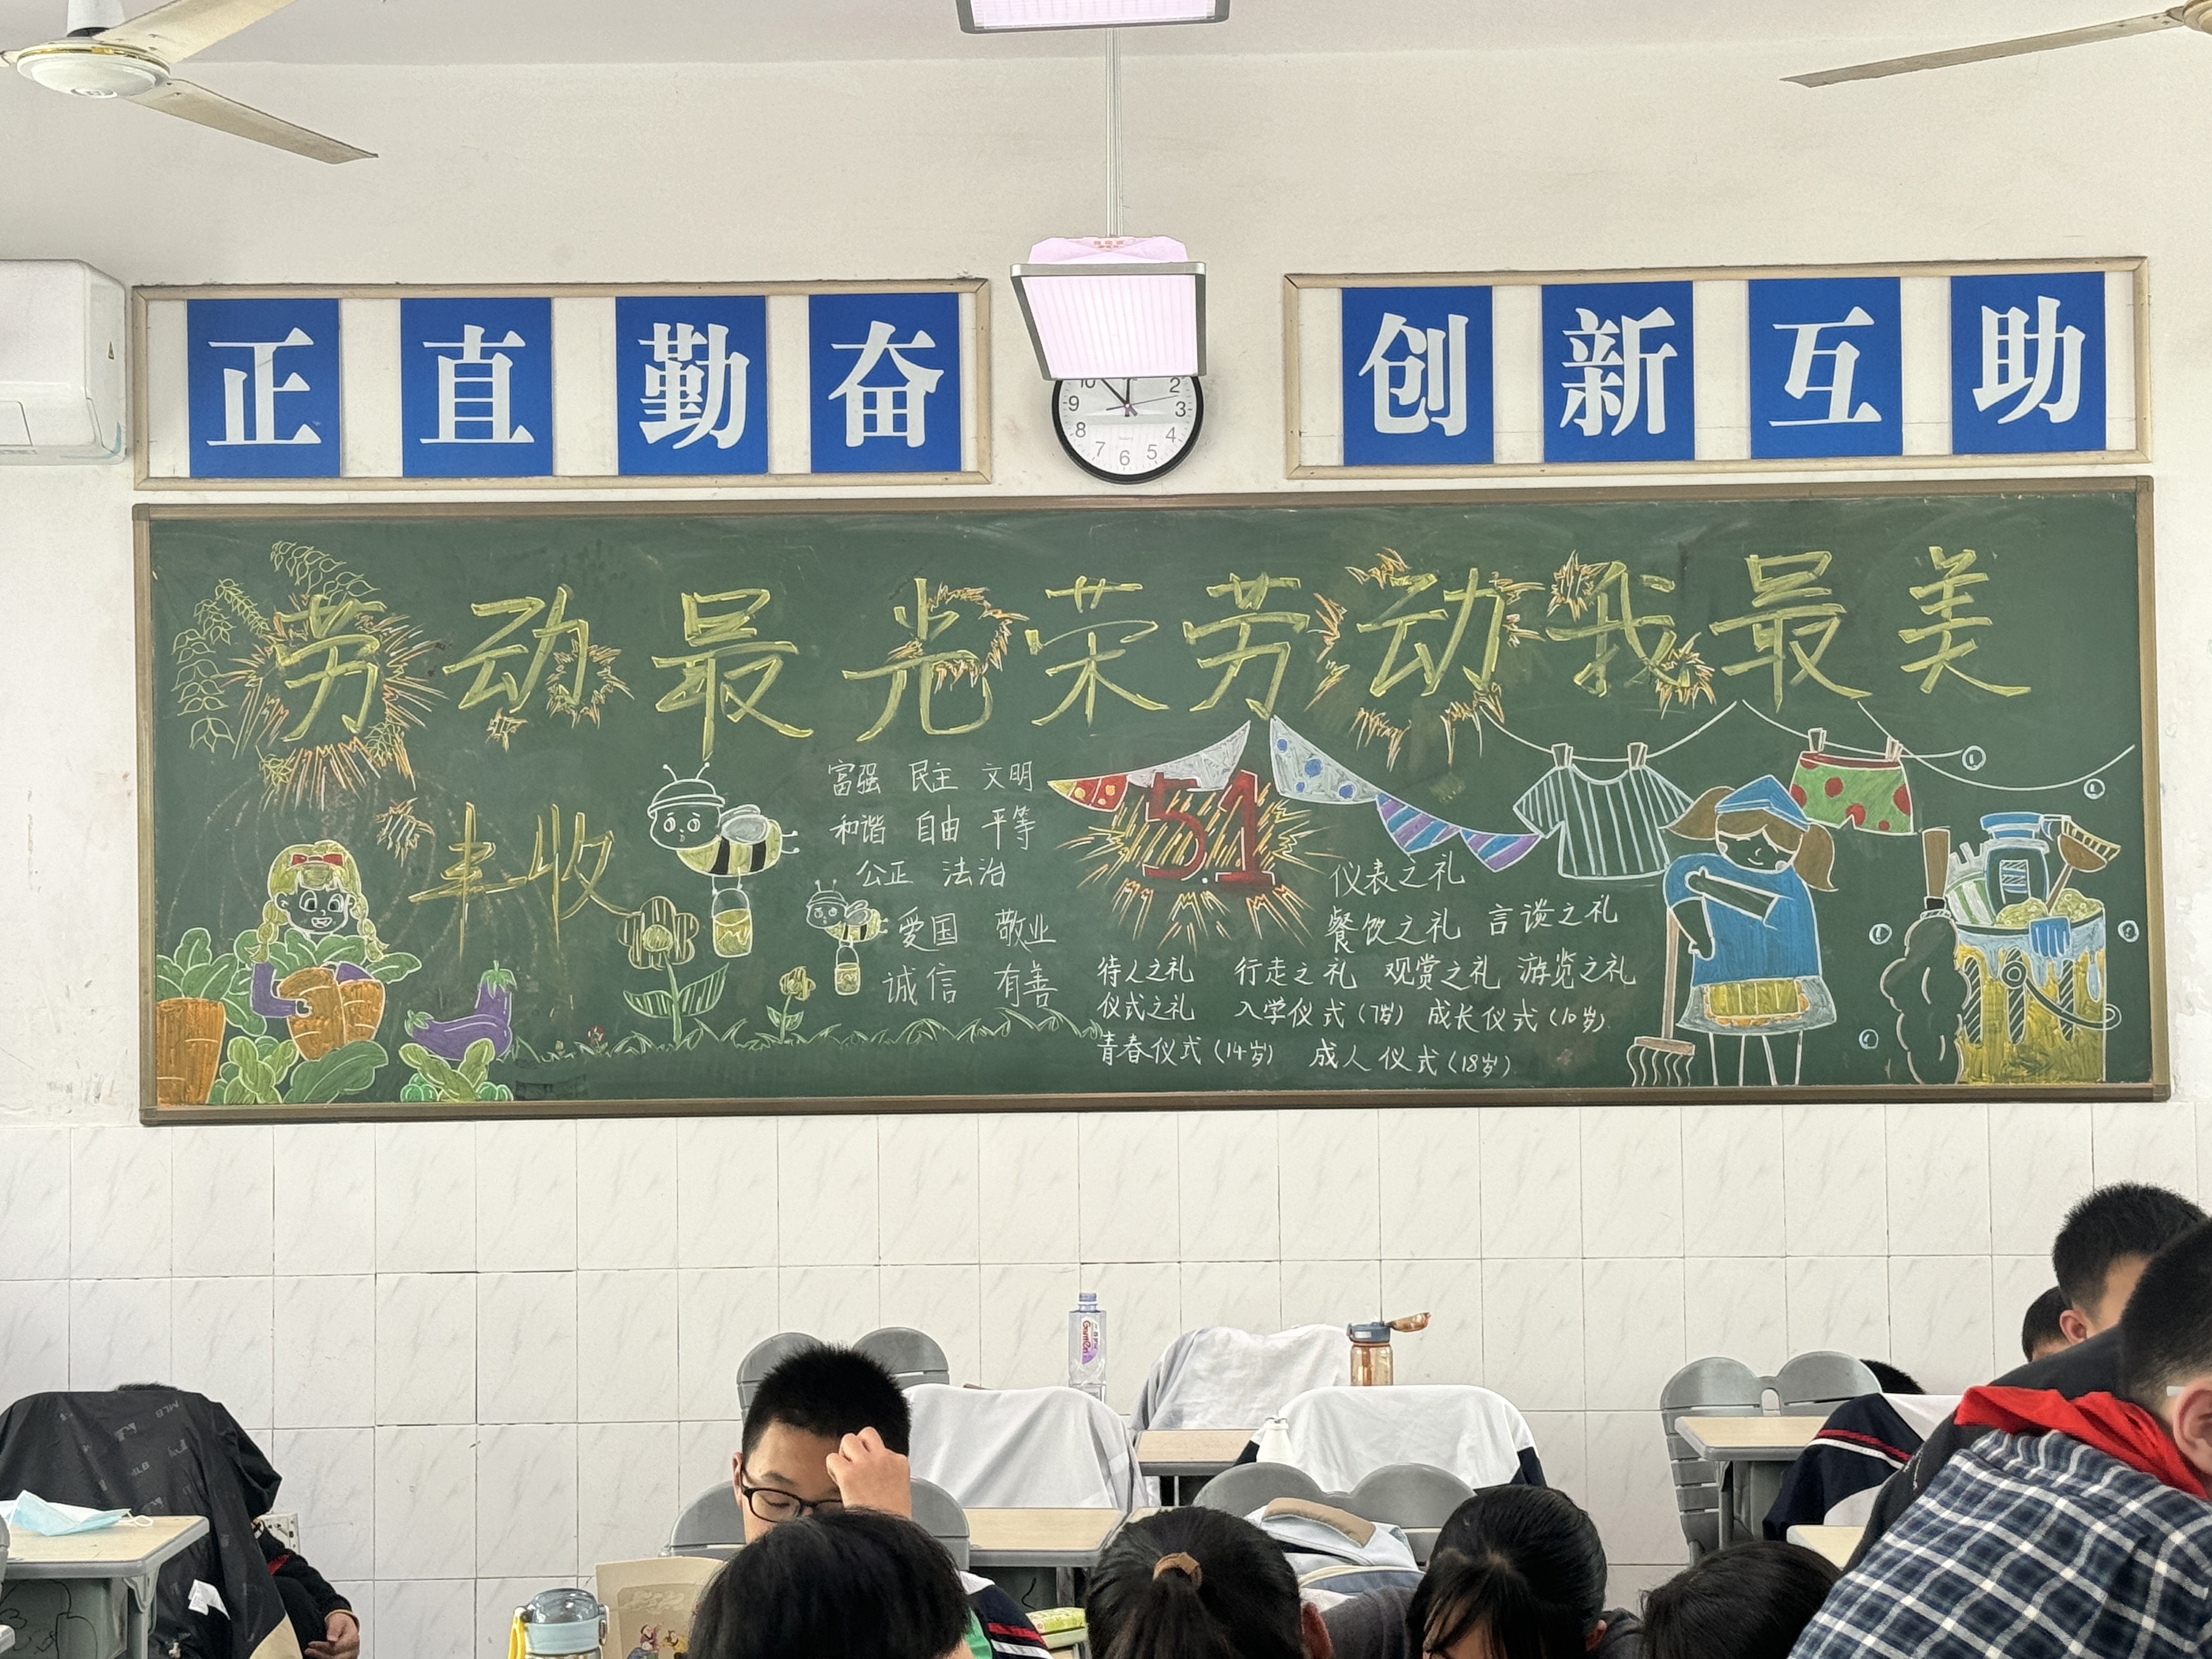 正直勤奋
创新互助
10 2
9 3
8 4
7 6 5
劳动最光荣劳动我最美
丰收
富强 民主 文明
和谐 自由 平等
公正 法治
爱国 敬业
诚信 有善
5.1
仪表之礼
餐饮之礼 言谈之礼
待人之礼 行走之礼 观赏之礼 游览之礼
仪式之礼 入学仪式(7岁) 成长仪式(10岁)
青春仪式(14岁) 成人仪式(18岁)
MLB
MLB